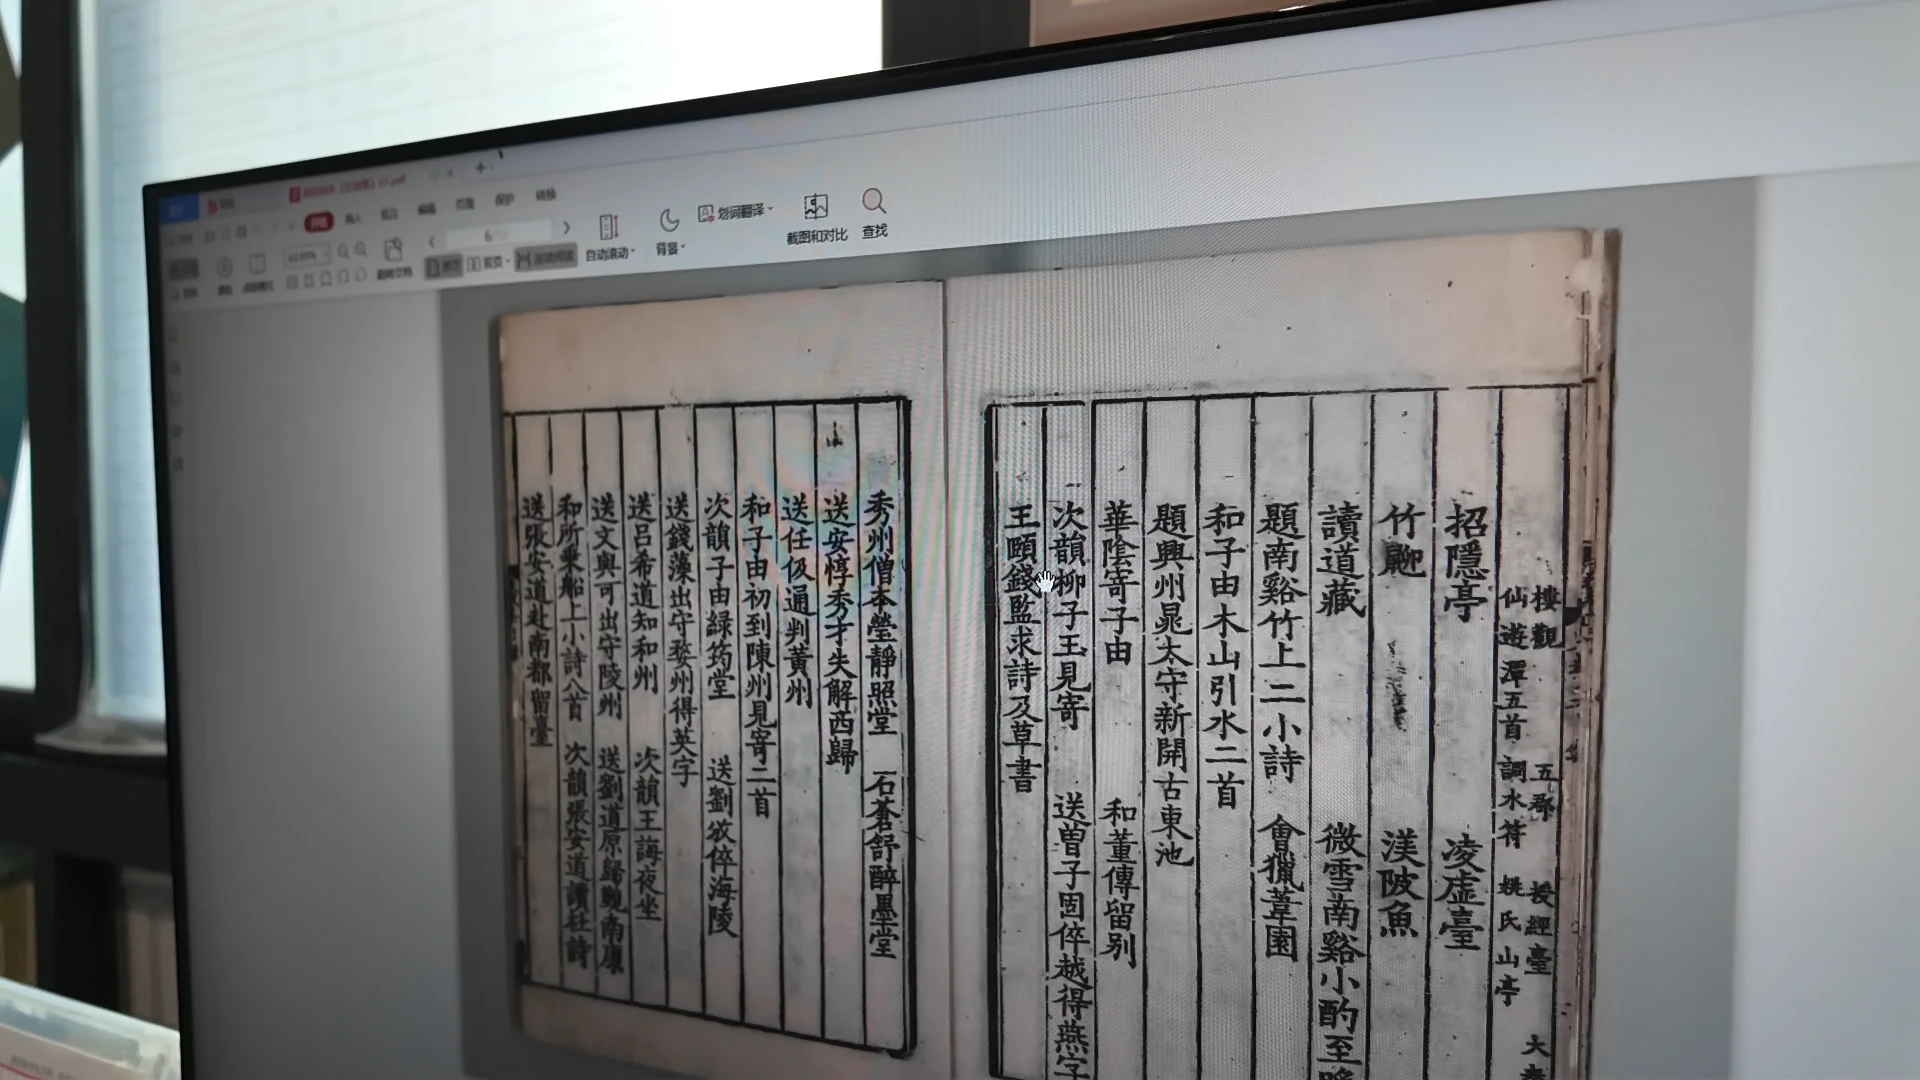 开始
插入
批注
编辑
页面
保护
转换
自动滚动
背景
划词翻译
截图和对比
查找
樓觀 五郡 授經臺 大
仙遊潭五首 調水符 姚氏山亭
招隱亭 凌虚臺
竹䶉 渼陂魚
讀道藏 微雪南谿小酌至晚
題南谿竹上二小詩 會獵葦園
和子由木山引水二首
題興州晁太守新開古東池
華陰寄子由 和董傳留别
次韻柳子玉見寄 送曾子固倅越得燕字
王頤錢監求詩及草書
秀州僧本瑩靜照堂 石蒼舒醉墨堂
送安惇秀才失解西歸
送任伋通判黃州
和子由初到陳州見寄二首
次韻子由綠筠堂 送劉攽倅海陵
送錢藻出守婺州得英字
送呂希道知和州 次韻王誨夜坐
送文與可出守陵州 送劉道原歸覲南康
和所乘船上小詩八首 次韻張安道讀杜詩
送張安道赴南都留臺